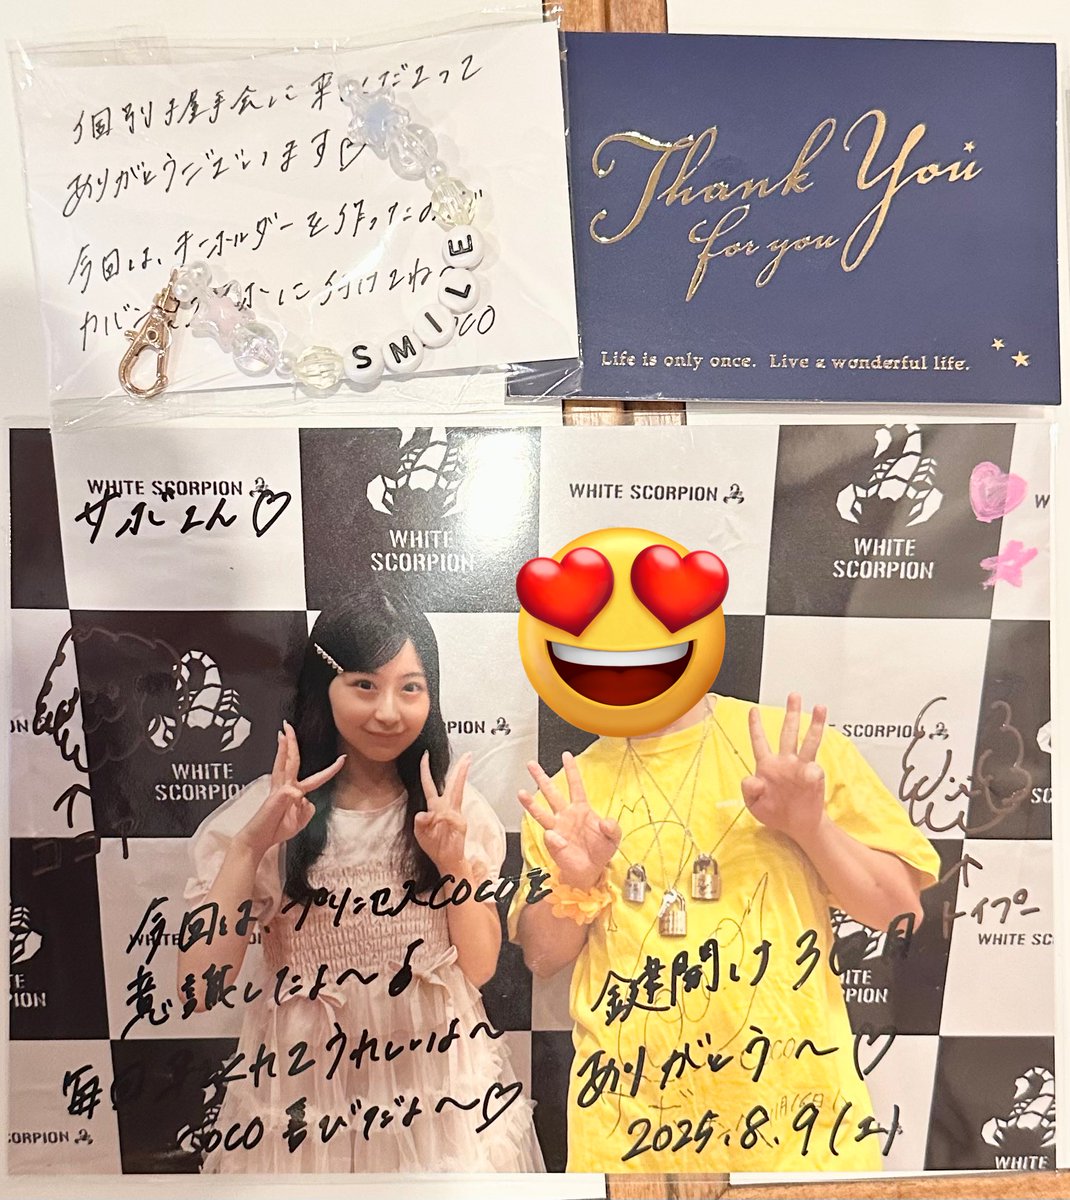 個別握手会に来てくださって
ありがとうございます♡
今回は、キーホルダーを作ったので
カバン
に付けてね〜
COCO
SMILE
Thank You
for you
Life is only once. Live a wonderful life.
WHITE SCORPION
サボさん♡
WHITE SCORPION
WHITE SCORPION
WHITE SCORPION
WHITE SCORPION
SCORPION
WHITE SCORPION
↑
↑
トイプー
今回は、プリンセスCOCOを
意識したよ〜♪
毎回
それてうれしいよ〜
COCO喜びだよ〜♡
鍵開け
ありがとう〜♡
2025.8.9(土)
WHITE SC
ORPION
WHITE